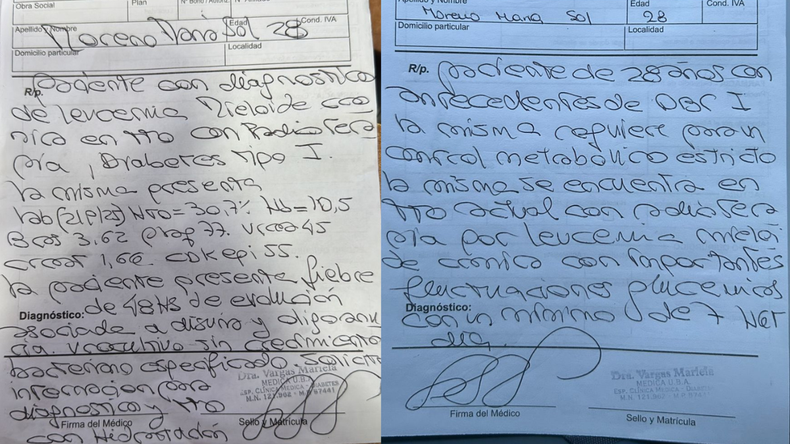 Obra Social
Plan
Cond. IVA
Apellido y Nombre
Moreno Maria Sol
Edad
28
Domicilio particular
Localidad
R/p.
paciente con diagnostico
de leucemia Mieloide cro
nica en TTO con Radiotera
pia, Diabetes tipo I.
la misma presenta
Hb = 10,5
3,62 77. Urea 45
1,66. CDKepi 55.
la paciente presenta fiebre
Diagnóstico:
de 48 HS de evolución
asociada a disuria y
Urocultivo sin crecimiento
bacteriano especificado. Solicito
internacion para
diagnostico y TTO
con Hidratación
Dra. Vargas Mariela
MEDICA U.B.A.
ESP. CLÍNICA MÉDICA - DIABETES
M.N. 121.962 - M.P. 97441
Firma del Médico
Sello y Matrícula
Apellido y Nombre
Moreno Maria Sol
Edad
28
Cond. IVA
Domicilio particular
Localidad
R/p.
paciente de 28 años con
antecedentes de DBT I
la misma requiere para un
control metabólico estricto
la misma se encuentra en
TTO actual con radiotera
pia por leucemia mieloi
de crónica con importantes
fluctuaciones glucemicas
Diagnóstico:
con un mínimo de 7 HGT
dia.
Dra. Vargas Mariela
MEDICA U.B.A.
ESP. CLÍNICA MÉDICA - DIABETES
M.N. 121.962 - M.P. 97441
Firma del Médico
Sello y Matrícula